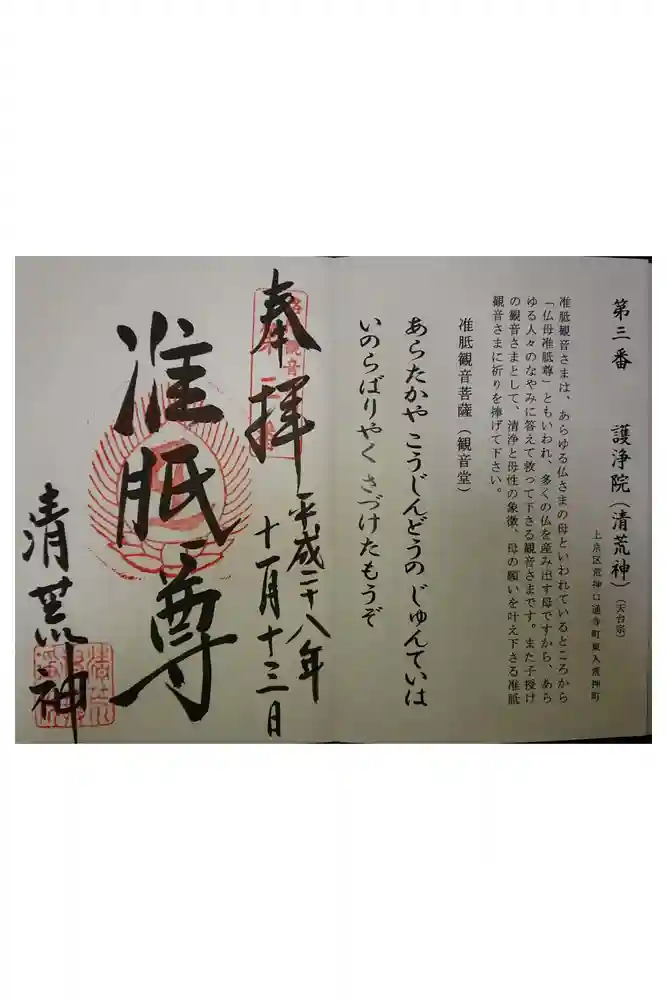 第三番 護浄院(清荒神)(天台宗)
上京区荒神口通寺町東入荒神町
准胝観音さまは、あらゆる仏さまの母といわれているところから
「仏母准胝尊」ともいわれ、多くの仏を産み出す母ですから、あら
ゆる人々のなやみに答えて救って下さる観音さまです。また子授け
の観音さまとして、清浄と母性の象徴、母の願いを叶え下さる准胝
観音さまに祈りを捧げて下さい。
准胝観音菩薩(観音堂)
あらたかや こうじんどうの じゅんていは
いのらばりやく さづけたもうぞ
奉拝
平成二十八年
十一月十三日
准胝尊
清荒神